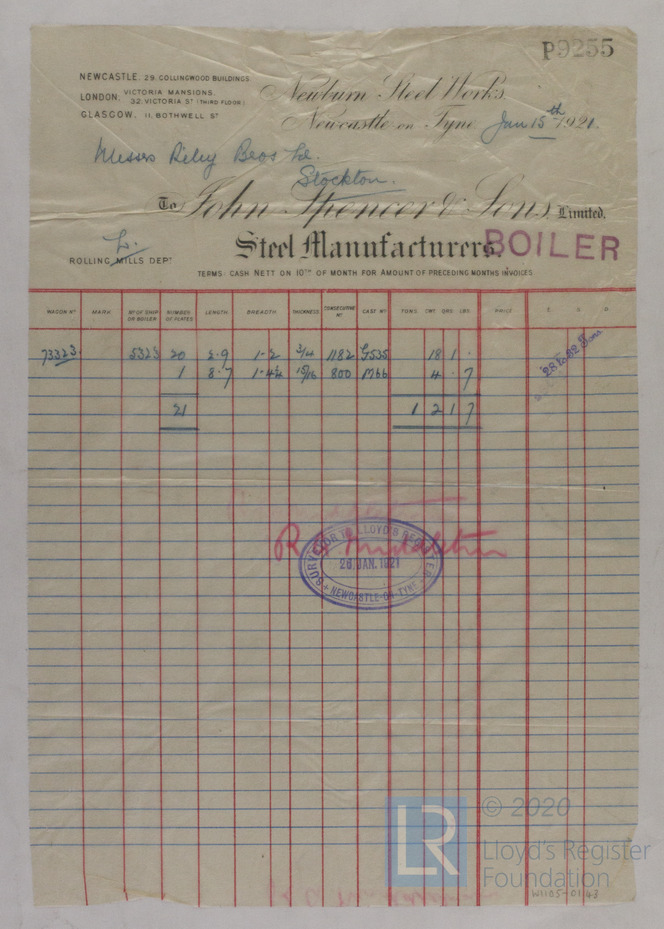 P9255
NEWCASTLE. 29 COLLINGWOOD BUILDINGS.
LONDON. VICTORIA MANSIONS.
32, VICTORIA ST (THIRD FLOOR)
GLASGOW. 11, BOTHWELL ST
Newburn Steel Works,
Newcastle on Tyne Jan 15th 1921.
Messrs Riley Bros Ld.
Stockton.
To John Spencer & Sons, Limited,
Steel Manufacturers.
BOILER
L.
ROLLING MILLS DEPT
TERMS: CASH NETT ON 10TH OF MONTH FOR AMOUNT OF PRECEDING MONTHS INVOICES
WAGON No MARK No OF SHIP OR BOILER NUMBER OF PLATES LENGTH BREADTH THICKNESS CONSECUTIVE No CAST No TONS CWT QRS LBS PRICE £ S D
73323 5323 20 2.9 1-2 3/4 1182 G535 18 1 .
1 8.7 1-4½ 15/16 800 M66 4 . 7
21 1 2 1 7
28 to 32 Tons
SURVEYOR TO LLOYD'S REGISTER
26. JAN. 1921
NEWCASTLE-ON-TYNE
© 2020
LR Lloyd's Register
Foundation
W1105-0143